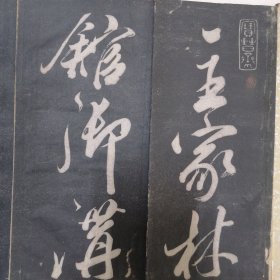 主家林
館御溝